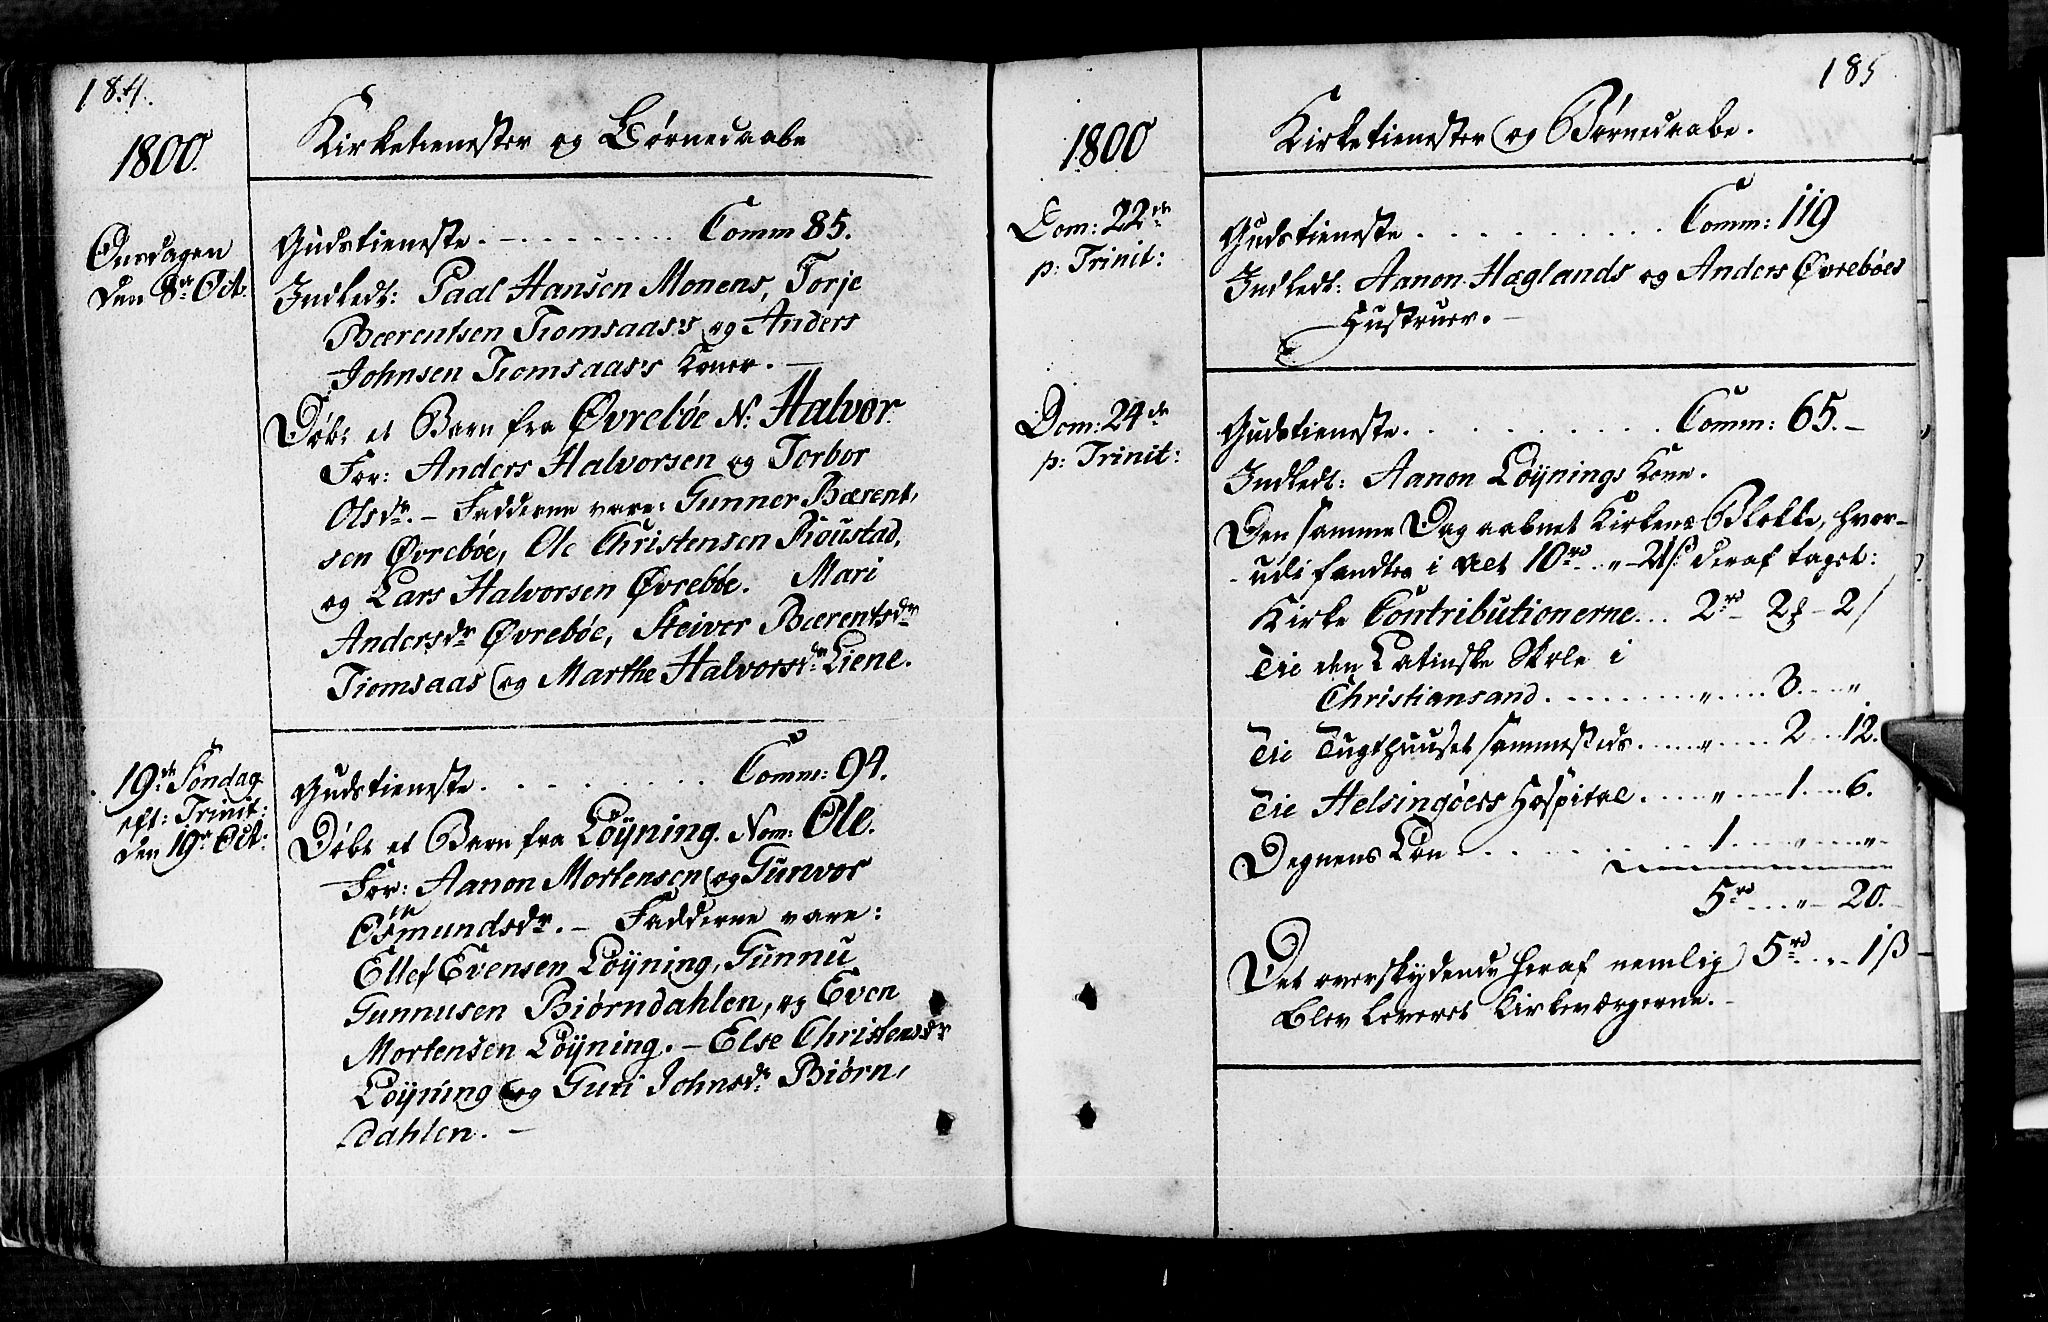 184.
1800.
Kirketienester og Børnedaabe
Onsdagen
den 8de Oct:
Gudstieneste. - . . . . . . . . Comm 85.
Indledt: Paal Hansen Monens, Torje
Bærentsen Tiomsaas's og Anders
Johnsen Tiomsaas's Koner. -
Døbt et Barn fra Øvrebøe N: Halvor.
For: Anders Halvorsen og Torbor
Olsdr. - Fadderne vare: Gunner Bærent,
sen Øvrebøe, Ole Christensen Røustad,
og Lars Halvorsen Øvrebøe. Mari
Andersdr Øvrebøe, Steiver Bærentsdr
Tiomsaas og Marthe Halvorsdr Liene.
19de Søndag
eft: Trinit:
den 19de Oct:
Gudstieneste. . . . . . . . Comm: 94.
Døbt et Barn fra Løÿning. Nom: Ole.
For: Aanon Mortensen og Gunvor
Osmundsdr. - Fadderne vare:
Ellef Evensen Løÿning, Gunnu
Gunnusen Biørndahlen, og Even
Mortensen Løÿning. - Else Christensdr
Løÿning og Guri Johnsdr Biørn,
dahlen. -
185
1800
Kirketienester og Børnedaabe.
Dom: 22de
p: Trinit:
Gudstieneste . . . . . . . . . . Comm: 119
Indledt: Aanon Haglands og Anders Øvrebøes
Hustruer. -
Dom: 24de
p: Trinit:
Gudstieneste. . . . . . . . . . Comm: 65. -
Indledt: Aanon Løÿnings Kone.
Den samme Dag aabnet Kirkens Blokke, hvor-
- udi fandtes i alt 10rd. „ - 21ß deraf taget:
Kirke Contributionerne... 2rd - 2ß - 2/
Til den Latinske Skole i
Christiansand. . . . . . . . „ .... 3. ... „
Til Tugthuuset sammesteds. ... „ .... 2 ... 12.
Til Helsingøers Hospital. .... „ .... 1 .... 6.
Degnens Løn . . . . . . . . 1 .... „ .... „ -
5rd ... „ - 20. -
Det overskydende heraf nemlig 5rd .. „ .. 1ß
blev leveret Kirkeværgerne. -